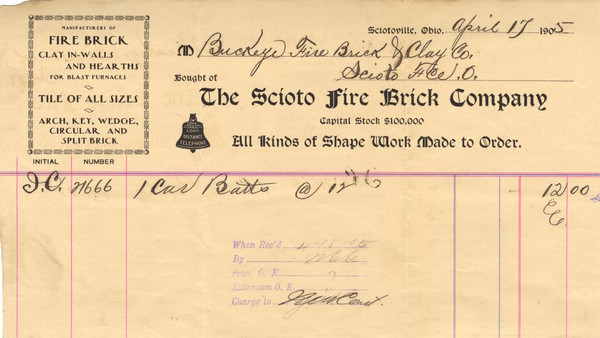 MANUFACTURERS OF
FIRE BRICK
CLAY IN-WALLS
AND HEARTHS
FOR BLAST FURNACES
TILE OF ALL SIZES
ARCH, KEY, WEDGE,
CIRCULAR AND
SPLIT BRICK
Sciotoville, Ohio, April 17 1905
M Buckeye Fire Brick & Clay Co.
Scioto Fce. O.
Bought of
The Scioto Fire Brick Company
Capital Stock $100,000
LONG
DISTANCE
TELEPHONE
All Kinds of Shape Work Made to Order.
INITIAL NUMBER
I.C. 71666 1 Car Batts @ 12 12 00
When Rec'd 4-18-05
By
Price O. K.
Extension O. K.
Charge to